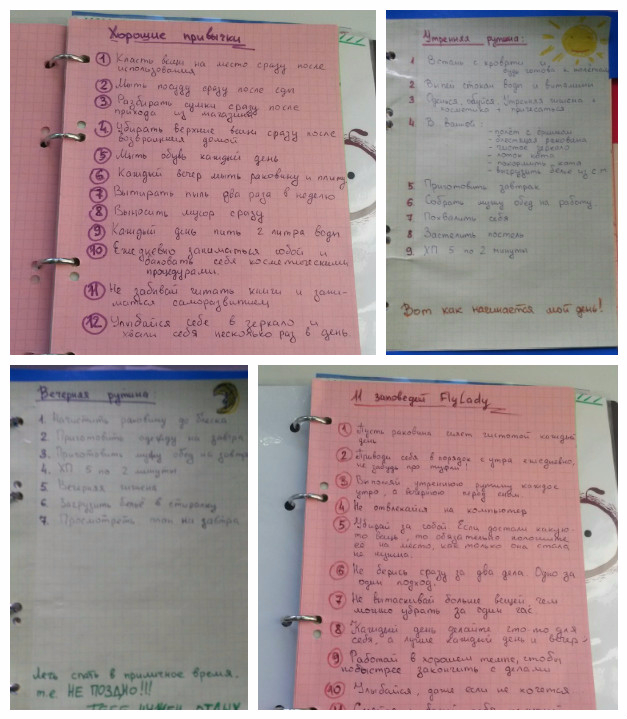 Хорошие привычки
1 Класть вещи на место сразу после
использования
2 Мыть посуду сразу после еды
3 Разбирать сумки сразу после
прихода из магазина
4 Убирать верхние вещи сразу после
возвращения домой
5 Мыть обувь каждый день
6 Каждый вечер мыть раковину и плиту
7 Вытирать пыль два раза в неделю
8 Выносить мусор сразу
9 Каждый день пить 2 литра воды
10 Ежедневно заниматься собой и
баловать себя косметическими
процедурами.
11 Не забывай читать книги и зани-
маться саморазвитием
12 Улыбайся себе в зеркало и
хвали себя несколько раз в день
Утренняя рутина:
1 Встань с кровати и
2 Выпей стакан воды и витамины
3 Утренняя гигиена +
косметика + причесаться
4 В ванной:
- чистое зеркало
5 Приготовить завтрак
6 Собрать мужу обед на работу
7 Похвалить себя
8 Застелить постель
9. ХП 5 по 2 минуты
Вот как начинается мой день!
Вечерняя рутина:
1. Начистить раковину до блеска
2 Приготовить одежду на завтра
3. Приготовить мужу обед на завтра
4. ХП 5 по 2 минуты
5 Вечерняя гигиена
6. Загрузить бельё в стиралку
7. Просмотреть план на завтра
Лечь спать в приличное время,
т.е. НЕ ПОЗДНО!!!
ТЕБЕ НУЖЕН ОТДЫХ
11 заповедей FlyLady
1 Пусть раковина сияет чистотой каждый
день
2 Приводи себя в порядок с утра ежедневно,
не забудь про туфли!
3. Выполняй утреннюю рутину каждое
утро, а вечернюю перед сном.
4 Не отвлекайся на компьютер
5 Убирай за собой. Если достали какую-
то вещь, то обязательно положите
её на место, как только она стала
не нужна.
6 Не берись сразу за два дела. Одно за
один подход.
7 Не вытаскивай больше вещей, чем
можно убрать за один час.
8 Каждый день делайте что-то для
себя, а лучше каждый день и вечер
9 Работай в хорошем темпе, чтобы
побыстрее закончить с делами
10 Улыбайся, даже если не хочется...